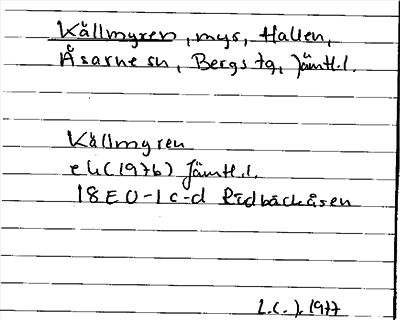 Källmyren, myr, Hallen,
Åsarne sn, Bergs tg, Jämtl.l.
Källmyren
ek (1976) Jämtl.l.
18E 0-1 c-d Rödbäcksåsen
1977